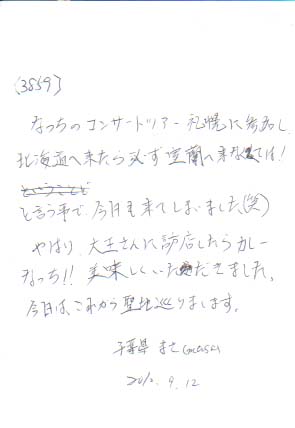 (3859)
なっちのコンサートツアー札幌に参加し
北海道へ来たら必ず室蘭へ来なくては!
ということで
と言う事で今日も来てしまいました(笑)
やはり大王さんに訪店したらカレー
なっち!!美味しくいただきました。
今日は、これから聖地巡りします。
千葉県 まさ
2010.9.12